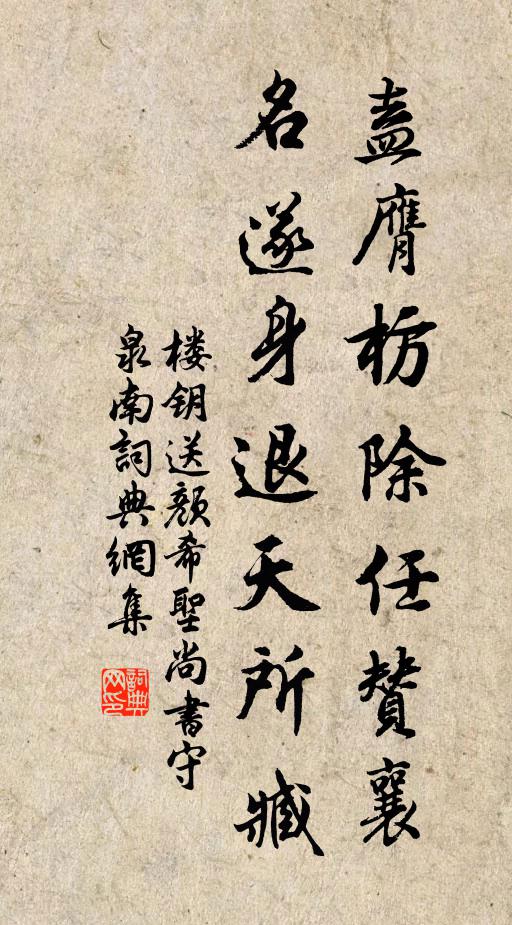 盍膺枋除任赞襄
名遂身退天所臧
楼钥送颜希聖尚書守
泉南詞典網集
詞典
网印